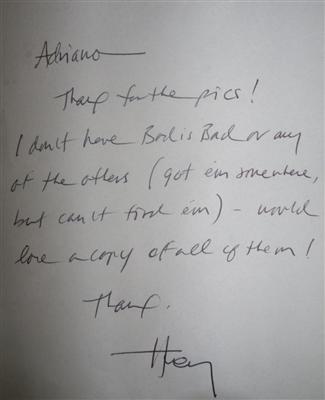 Adriano
Thanx for the pics!
I don't have Bad is Bad or any
of the others (got 'em somewhere,
but can't find 'em) - would
love a copy of all of them!
Thanx.